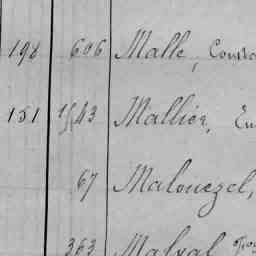 198 606 Malle,
151 43 Mallier,
67 Malouezel,
363 Malval